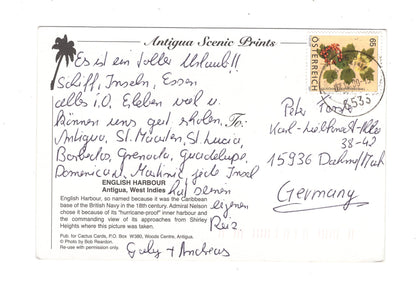 Antigua Scenic Prints
Es ist ein toller Urlaub!!
Schiff, Inseln, Essen
alles i.O. Erleben viel u.
können uns gut erholen. Tr:
Antigua, St. Maarten, St. Lucia,
Barbados, Grenada, Guadelupe,
Dominica u. Martinie jede Insel
hat seinen
eigenen
Reiz
Gaby + Andreas
ENGLISH HARBOUR
Antigua, West Indies
English Harbour, so named because it was the Caribbean
base of the British Navy in the 18th century. Admiral Nelson
chose it because of its "hurricane-proof" inner harbour and
the commanding view of its approaches from Shirley
Heights where this picture was taken.
Pub. for Cactus Cards, P.O. Box W380, Woods Centre, Antigua
© Photo by Bob Reardon.
Re-use with permission only.
ÖSTERREICH
65
6533
Peter
Karl-Liebknecht-Allee
38-42
15936 Dahme/Mark
Germany